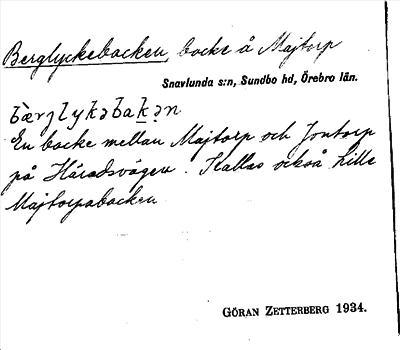 Berglyckebacken, backe å Majtorp
Snavlunda s:n, Sundbo hd, Örebro län.
En backe mellan Majtorp och Jontorp
på Häradsvägen. Kallas också Lilla
Majtorpabacken
GÖRAN ZETTERBERG 1934.